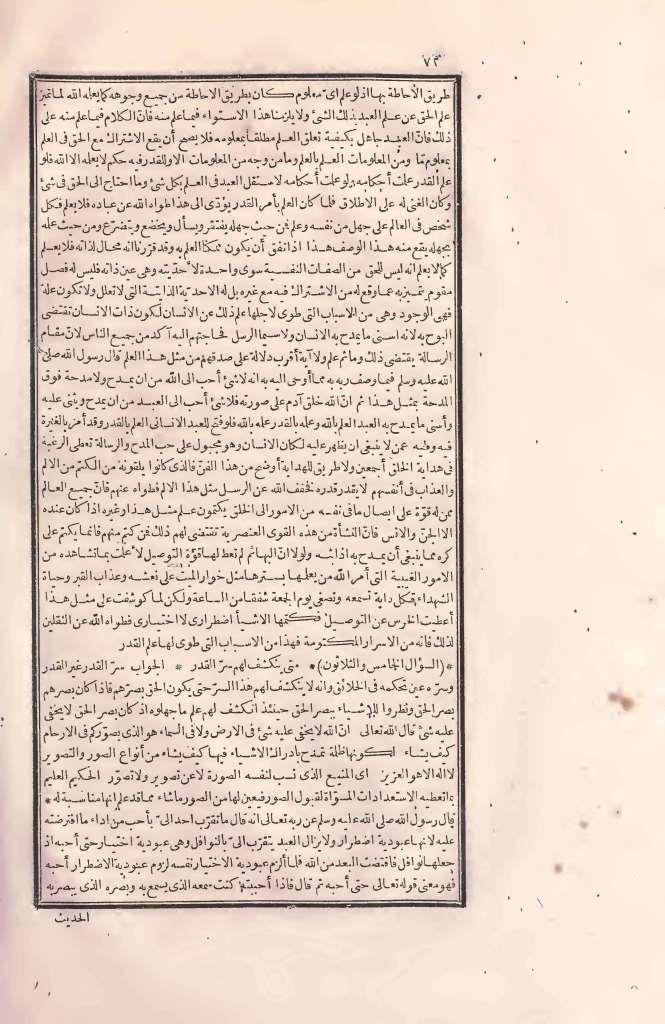 ٧٣
طريق الاحاطة بها اذ لو علم اى معلوم كان بطريق الاحاطة من جميع وجوهه كما يعلمه الله لما تميز
علم الحق عن علم العبد بذلك الشئ ولا يلزمنا هذا الاستواء فيما علم منه فان الكلام فيما علم منه على
ذلك فان العبد جاهل بكيفية تعلق العلم مطلقا بمعلومه فلا يصح أن يقع الاشتراك مع الحق فى العلم
بمعلوم ما ومن المعلومات العلم بالعلم وما من وجه من المعلومات الا وللقدر فيه حكم لا يعلمه الا الله فلو
علم القدر علمت أحكامه ولو علمت أحكامه لاستقل العبد فى العلم بكل شئ وما احتاج الى الحق فى شئ
وكان الغنى له على الاطلاق فلما كان العلم بأمر القدر يؤدى الى هذا طواه الله عن عباده فلا يعلم فكل
شخص فى العالم على جهل من نفسه وعلم فمن حيث جهله يفتقر ويسأل ويخضع ويتضرع ومن حيث علمه
بجهله يقع منه هذا الوصف هذا اذ اتفق أن يكون تمكنا العلم به وقد قررنا انه محال لذاته فلا يعلم
كما لا يعلم انه ليس للحق من الصفات النفسية سوى واحدة لأحديته وهى عين ذاته فليس له فصل
مقوم يتميز به عما وقع له من الاشتراك فيه مع غيره بل له الاحدية الذاتية التى لا تعلل ولا تكون علة
فهى الوجود وهى من الاسباب التى طوى لاجلها علم ذلك عن الانسان لكون ذات الانسان تقتضى
البوح به لانه اسنى ما يمدح به الانسان ولا سيما الرسل فحاجتهم اليه آكد من جميع الناس لان مقام
الرسالة يقتضى ذلك وما ثم علم ولا آية أقرب دلالة على صدقهم من مثل هذا العلم قال رسول الله صلى
الله عليه وسلم فيما وصف ربه به مما أوحى اليه به انه لا شئ أحب الى الله من ان يمدح ولا مدحة فوق
المدحة بمثل هذا ثم ان الله خلق آدم على صورته فلا شئ أحب الى العبد من ان يمدح ويثنى عليه
وأسنى ما يمدح به العبد العلم بالله وعلمه بالقدر علمه بالله فلو فتح للعبد الانسانى العلم بالقدر وقد أمر بالغيرة
فيه وفيه عمن لا ينبغى ان يظهر عليه لكان الانسان وهو مجبول على حب المدح والرسالة تعطى الرغبة
فى هداية الخلق أجمعين ولا طريق للهداية أوضح من هذا الفن فالذى كانوا يلقونه من الكتم من الالم
والعذاب فى أنفسهم لا يقدر قدره فخفف الله عن الرسل مثل هذا الالم فطواه عنهم فان جميع العالم
ممن له قوة على ايصال ما فى نفسه من الامور الى الخلق يكتمون علم مثل هذا وغيره اذا كان عنده
الا الجن والانس فان النشأة من هذه القوى العنصرية تقتضى لهم ذلك فمن كتم منهم فانما يكتم على
كره مما ينبغى أن يمدح به اذا بثه ولولا ان البهائم لم تعط لها قوة التوصيل لأعلمت بما تشاهده من
الامور الغيبية التى أمر الله من يعلمها بسترها مثل خوار الميت على نعشه وعذاب القبر وحياة
الشهداء فكل دابة تسمعه وتصغى يوم الجمعة شفقا من الساعة ولكن لما كوشفت على مثل هذا
أعطيت الخرس عن التوصيل فكتمها الاشياء اضطرارى لا اختيارى فطواه الله عن الثقلين
لذلك فانه من الاسرار المكتومة فهذا من الاسباب التى طوى لها علم القدر
*(السؤال الخامس والثلاثون)* متى ينكشف لهم سر القدر * الجواب سر القدر غير القدر
وسره عين تحكمه فى الخلائق وانه لا ينكشف لهم هذا السر حتى يكون الحق بصرهم فاذا كان بصرهم
بصر الحق ونظروا الاشياء ببصر الحق حينئذ انكشف لهم علم ما جهلوه اذ كان بصر الحق لا يخفى
عليه شئ قال الله تعالى ان الله لا يخفى عليه شئ فى الارض ولا فى السماء هو الذى يصوركم فى الارحام
كيف يشاء لكونها ظلمة تمدح بادراك الاشياء فيها كيف يشاء من أنواع الصور والتصوير
لا اله الا هو العزيز اى المنيع الذى نسب لنفسه الصورة لا عن تصوير ولا تصور الحكيم العليم
بما تعطيه الاستعدادات المسواة لقبول الصور فيعين لها من الصور ما شاء مما قد علم انها مناسبة له *
قال رسول الله صلى الله عليه وسلم عن ربه تعالى انه قال ما تقرب احد الى بأحب من اداء ما افترضته
عليه لانها عبودية اضطرار ولا يزال العبد يتقرب الى بالنوافل وهى عبودية اختيار حتى أحبه اذ
جعلها نوافل فاقتضت البعد من الله فلما ألزم عبودية الاختيار نفسه لزوم عبودية الاضطرار أحبه
فهو معنى قوله تعالى حتى أحبه ثم قال فاذا أحببته كنت سمعه الذى يسمع به وبصره الذى يبصر به
الحديث